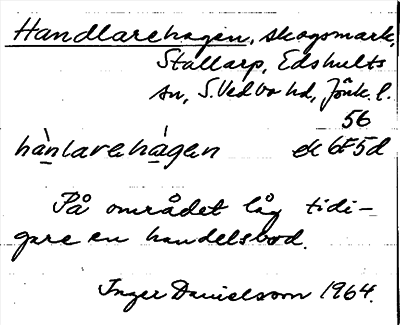 Handlarehagen, skogsmark,
Stallarp, Edshults
sn, S. Vedbo hd, Jönk. l.
56
hà̠nlarehá̠gen ek 6F5d
På området låg tidi-
gare en handelsbod.
Inger Danielsson 1964.